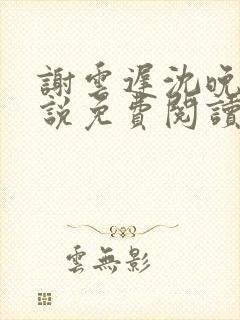 謝雲遲沈晚
說免費閱讀
雲無影